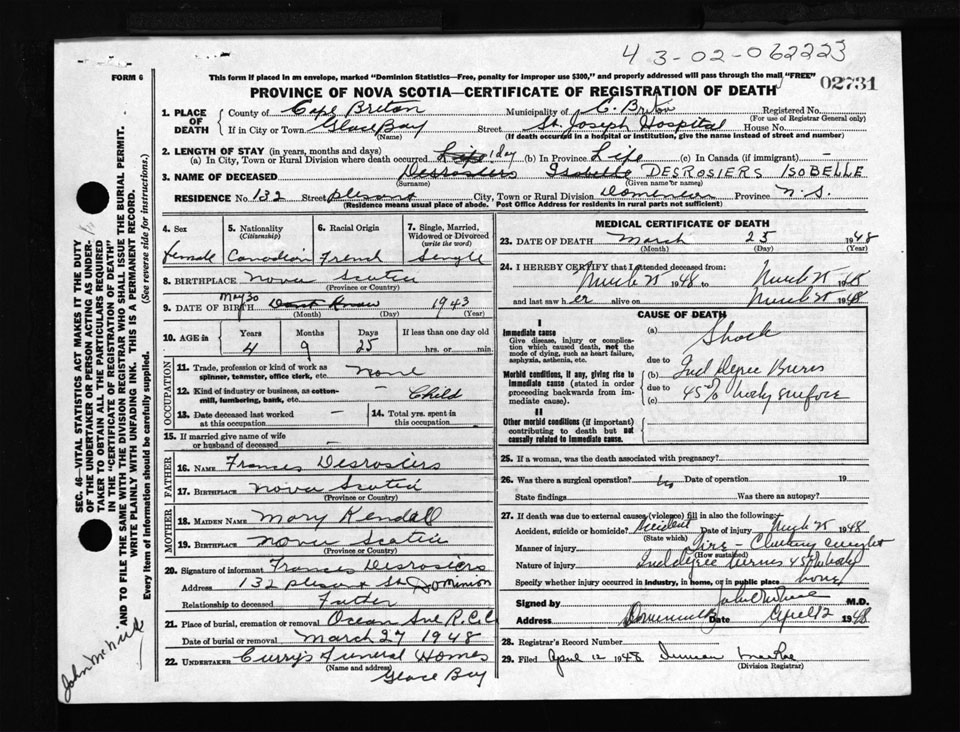 43-02-062223
FORM 6
This form if placed in an envelope, marked "Dominion Statistics—Free, penalty for improper use $300," and properly addressed will pass through the mail "FREE"
02731
PROVINCE OF NOVA SCOTIA—CERTIFICATE OF REGISTRATION OF DEATH
1. PLACE OF DEATH County of Cape Breton Municipality of C. Breton Registered No.
(For use of Registrar General only)
If in City or Town Glace Bay Street St. Joseph Hospital House No.
(Name) (If death occurred in a hospital or institution, give the name instead of street and number)
2. LENGTH OF STAY (in years, months and days)
(a) In City, Town or Rural Division where death occurred Life 1 day (b) In Province Life (c) In Canada (if immigrant) —
3. NAME OF DECEASED Desrosiers Isobelle DESROSIERS ISOBELLE
(Surname) (Given name or names)
RESIDENCE No. 132 Street Plesant City, Town or Rural Division Dominion Province N.S.
(Residence means usual place of abode. Post Office Address for residents in rural parts not sufficient)
4. Sex 5. Nationality (Citizenship) 6. Racial Origin 7. Single, Married, Widowed or Divorced (write the word)
Female Canadian French Single
8. BIRTHPLACE Nova Scotia
(Province or Country)
9. DATE OF BIRTH May 30 Dont Know 1943
(Month) (Day) (Year)
10. AGE in Years Months Days If less than one day old
4 9 25 hrs. or min.
OCCUPATION
11. Trade, profession or kind of work as spinner, teamster, office clerk, etc. None
12. Kind of industry or business, as cotton-mill, lumbering, bank, etc. — Child
13. Date deceased last worked at this occupation — 14. Total yrs. spent in this occupation
15. If married give name of wife or husband of deceased —
FATHER
16. NAME Frances Desrosiers
17. BIRTHPLACE Nova Scotia
(Province or Country)
MOTHER
18. MAIDEN NAME Mary Kendall
19. BIRTHPLACE Nova Scotia
(Province or Country)
20. Signature of informant Frances Desrosiers
Address 132 Plesant St. Dominion
Relationship to deceased Father
21. Place of burial, cremation or removal Ocean Ave R.C.C
Date of burial or removal March 27 1948
22. UNDERTAKER Curry's Funeral Homes
(Name and address)
Glace Bay
MEDICAL CERTIFICATE OF DEATH
23. DATE OF DEATH March 25 1948
(Month) (Day) (Year)
24. I HEREBY CERTIFY that I attended deceased from:
March 25 1948 March 25 1948
and last saw her alive on March 25 1948
CAUSE OF DEATH
I
Immediate cause
Give disease, injury or complication which caused death, not the mode of dying, such as heart failure, asphyxia, asthenia, etc.
(a) Shock
due to
Morbid conditions, if any, giving rise to immediate cause (stated in order proceeding backwards from immediate cause).
(b) 2nd Degree Burns
due to
(c) 45% body surface
II
Other morbid conditions (if important) contributing to death but not causally related to immediate cause.
25. If a woman, was the death associated with pregnancy?
26. Was there a surgical operation? No Date of operation 19
State findings Was there an autopsy?
27. If death was due to external causes (violence) fill in also the following:
Accident, suicide or homicide? Accident Date of injury March 25 1948
(State which)
Manner of injury Fire - Clothing caught
(How sustained)
Nature of injury 2nd degree burns 45% body
Specify whether injury occurred in industry, in home, or in public place home
Signed by M.D.
Address Dominion Date April 12 1948
28. Registrar's Record Number
29. Filed April 12 1948 Duncan MacRae
(Division Registrar)
SEC. 46—VITAL STATISTICS ACT MAKES IT THE DUTY
OF THE UNDERTAKER OR PERSON ACTING AS UNDER-
TAKER TO OBTAIN ALL THE PARTICULARS REQUIRED
IN THE "CERTIFICATE OF REGISTRATION OF DEATH"
AND TO FILE THE SAME WITH THE DIVISION REGISTRAR WHO SHALL ISSUE THE BURIAL PERMIT.
WRITE PLAINLY WITH UNFADING INK. THIS IS A PERMANENT RECORD.
Every item of information should be carefully supplied. (See reverse side for instructions.)